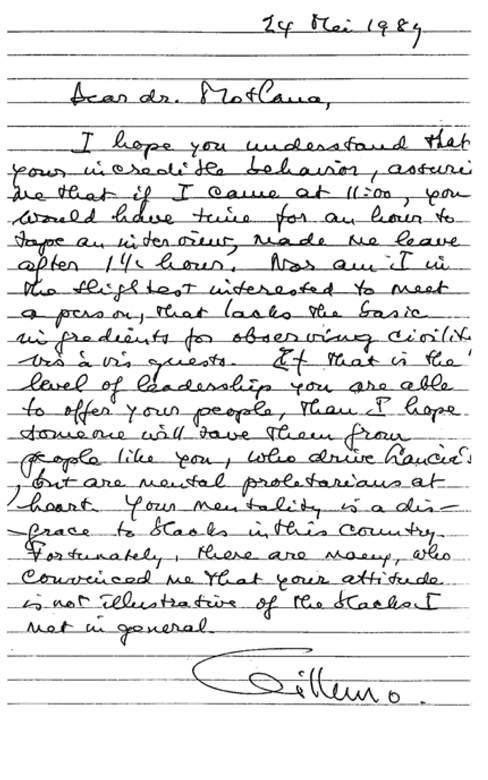 24 Mei 1989
Dear dr. Motlana,
I hope you understand that
your incredible behavior, assuri
me that if I came at 11:00, you
would have time for an hour to
tape an interview, made me leave
after 1¼ hour. Nor am I in
the slightest interested to meet
a person, that lacks the basic
ingredients for observing civilit
vis à vis guests. If that is the
level of leadership you are able
to offer your people, than I hope
someone will save them from
people like you, who drive Lancia's
, but are mental proletarians at
heart. Your mentality is a dis-
-grace to blacks in this country.
Fortunately, there are many, who
convinced me that your attitude
is not illustrative of the blacks I
met in general.